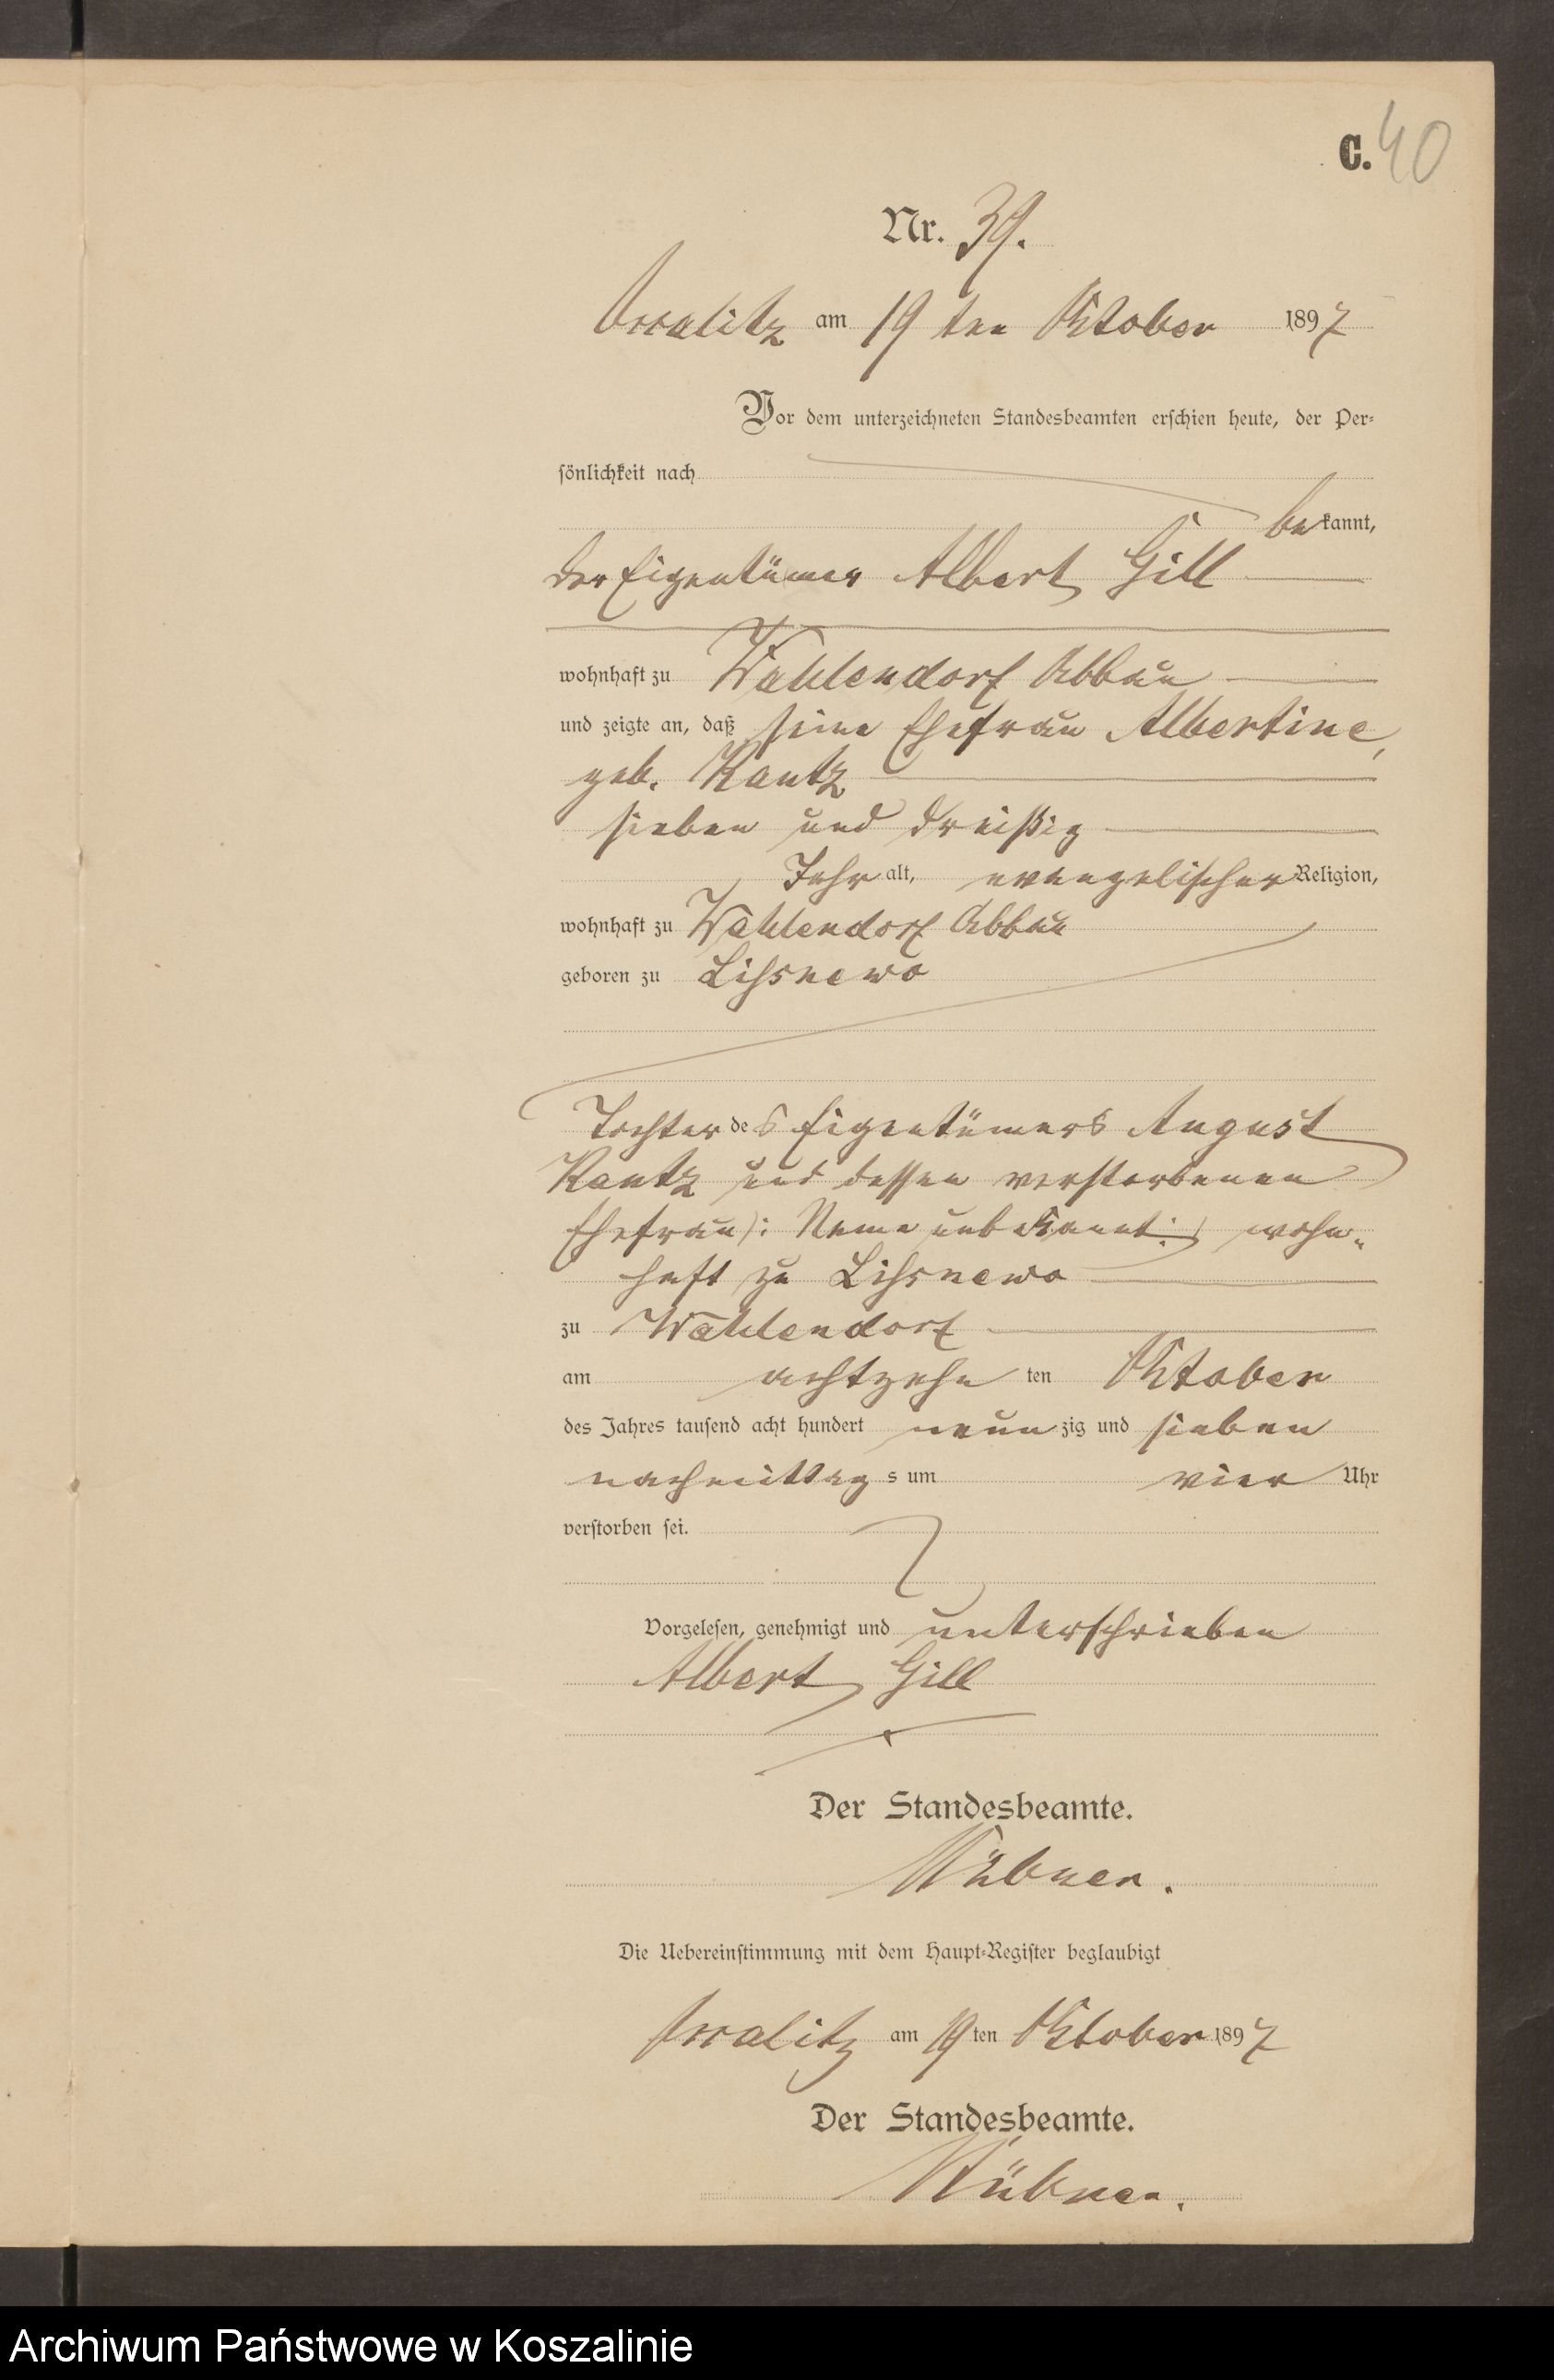 C. 40
Nr. 39.
am 19 ten Oktober 1897
Vor dem unterzeichneten Standesbeamten erschien heute, der Per-
sönlichkeit nach
bekannt,
der Eigentümer Albert Gill
wohnhaft zu Wahlendorf Abbau
und zeigte an, daß seine Ehefrau Albertine,
geb. Kautz
sieben und dreißig
Jahr alt, evangelischer Religion,
wohnhaft zu Wahlendorf Abbau
geboren zu Lissnewo
Tochter des Eigentümers August
Kautz und dessen verstorbenen
Ehefrau): Name unbekannt:) wohn-
haft zu Lissnewo
zu Wahlendorf
am achtzehn ten Oktober
des Jahres tausend acht hundert neunzig und sieben
nachmittags um vier Uhr
verstorben sei.
Vorgelesen, genehmigt und unterschrieben
Albert Gill
Der Standesbeamte.
Die Uebereinstimmung mit dem Haupt-Register beglaubigt
am 19ten Oktober 1897
Der Standesbeamte.
Archiwum Państwowe w Koszalinie